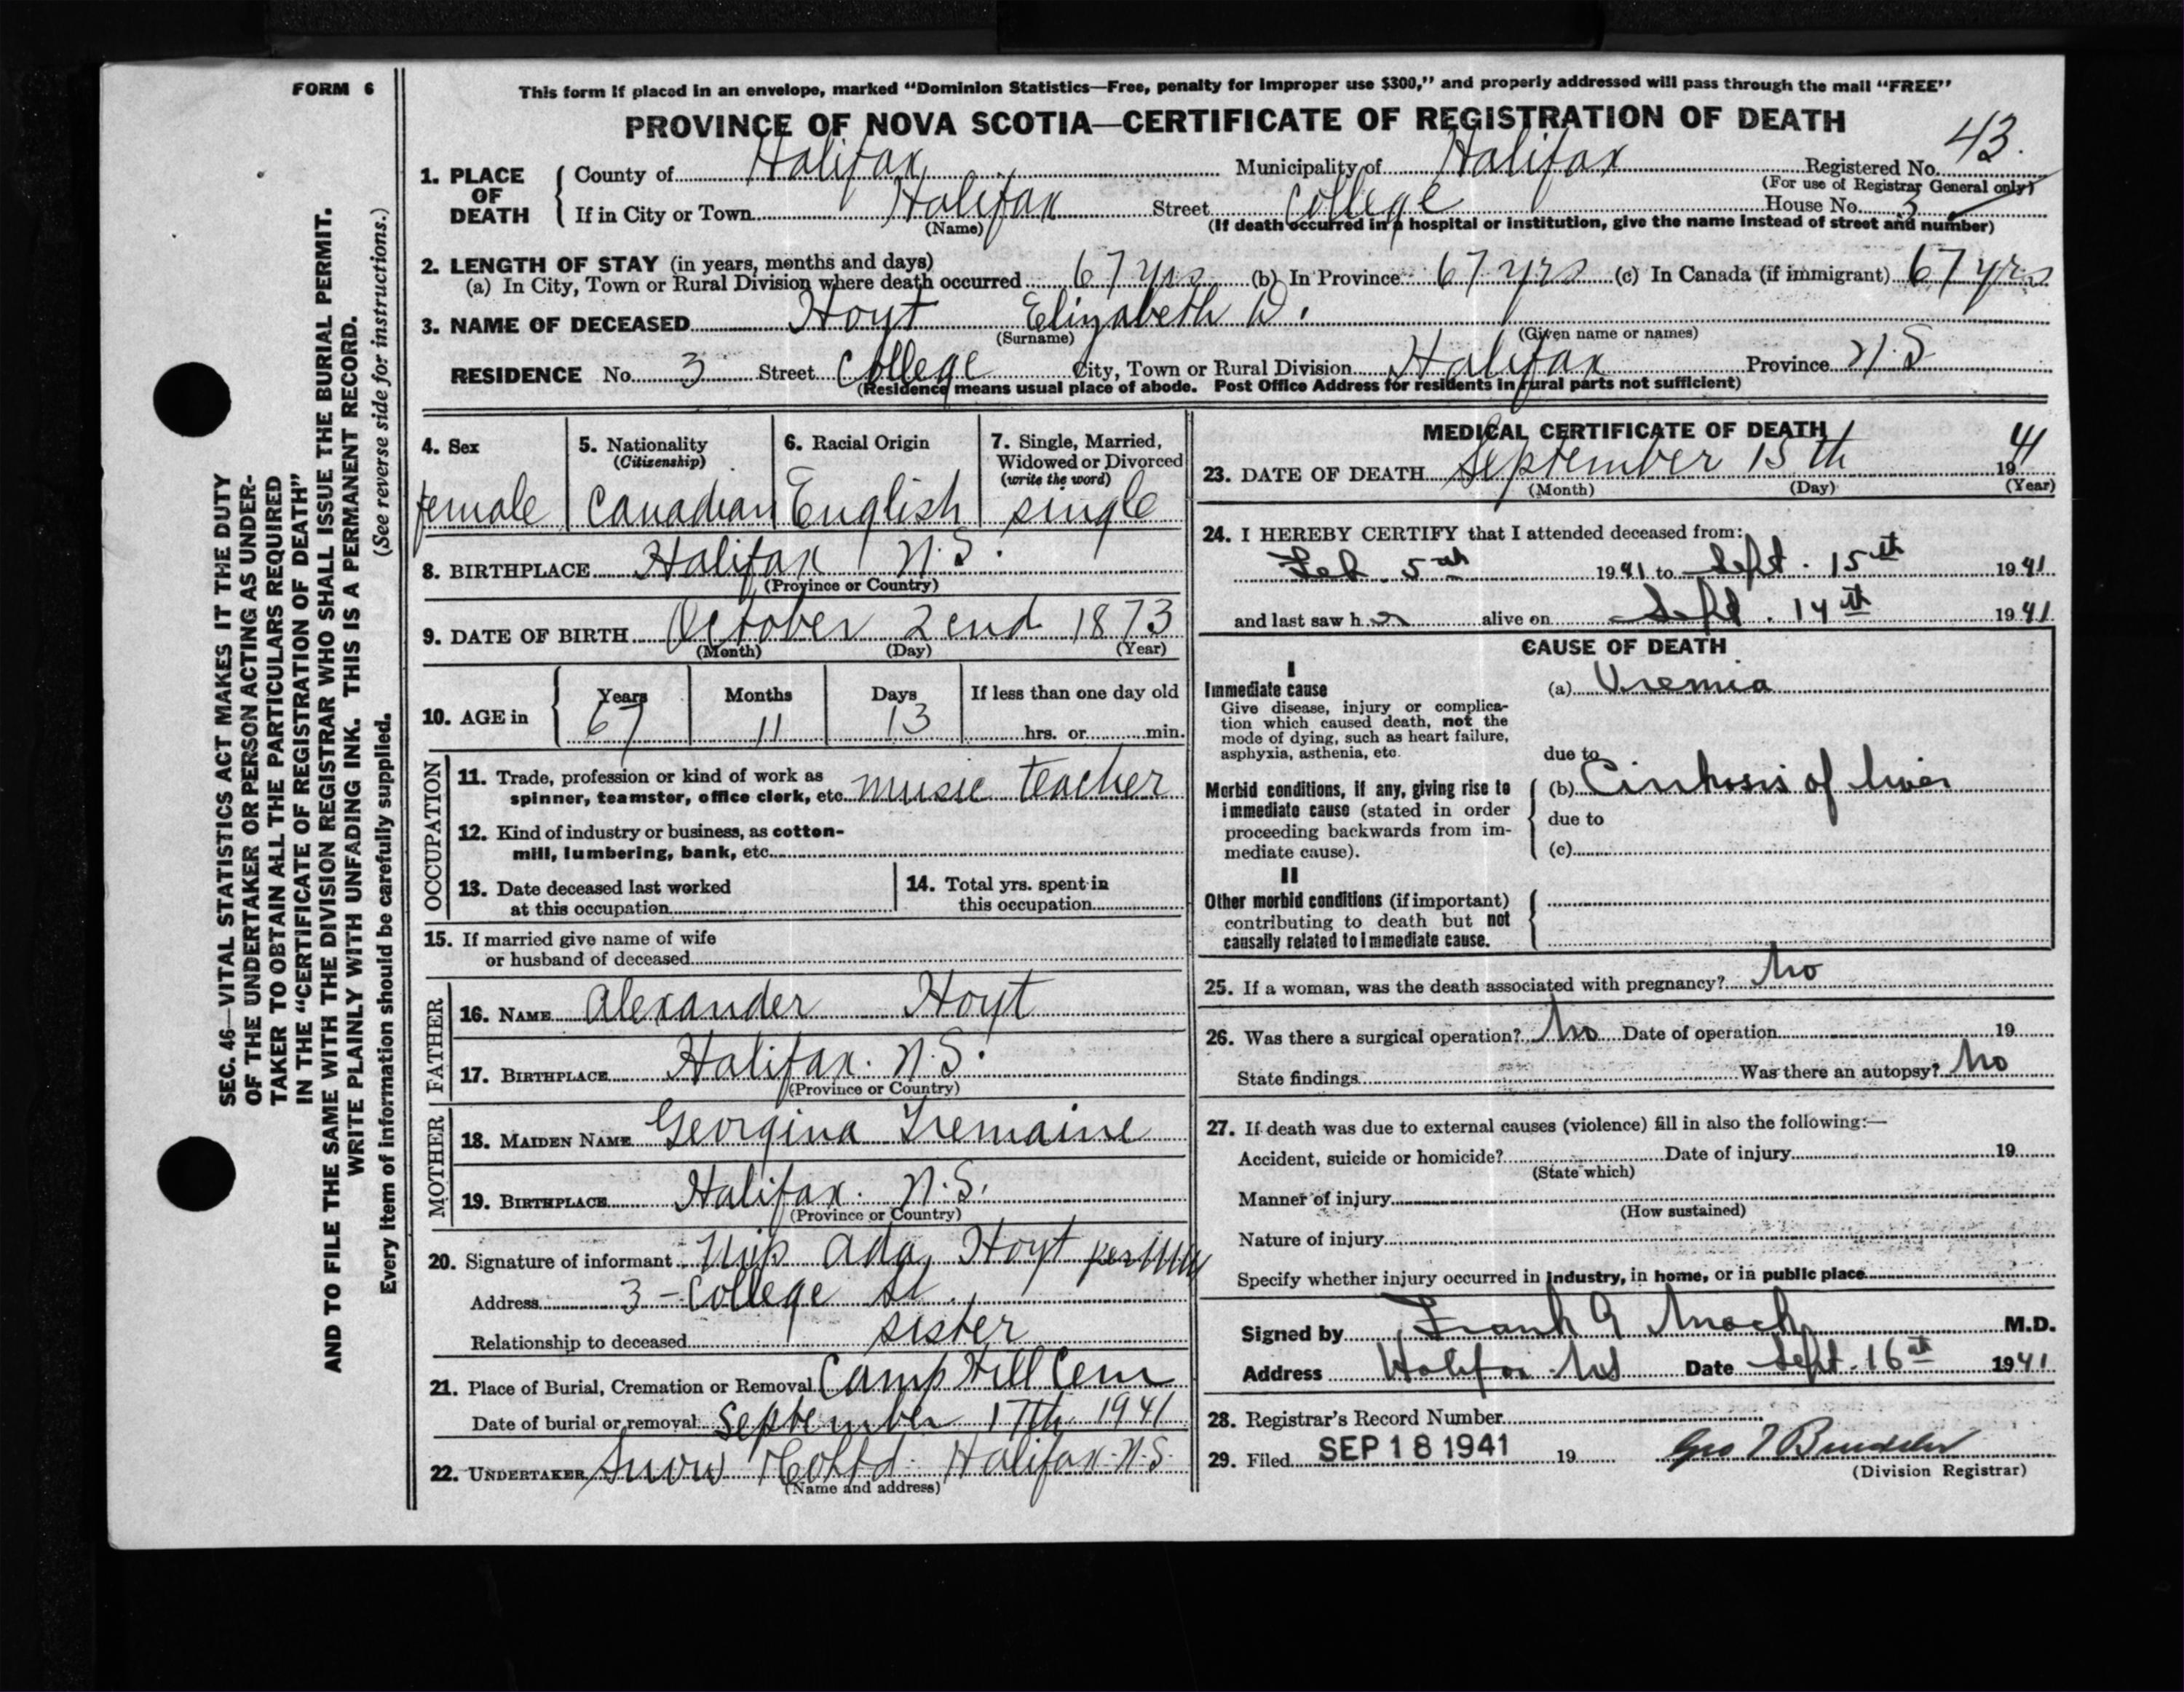 FORM 6
This form if placed in an envelope, marked "Dominion Statistics—Free, penalty for improper use $300," and properly addressed will pass through the mail "FREE"
PROVINCE OF NOVA SCOTIA—CERTIFICATE OF REGISTRATION OF DEATH
43.
1. PLACE OF DEATH { County of Halifax Municipality of Halifax Registered No.
(For use of Registrar General only)
If in City or Town Halifax Street College House No. 3
(Name) (If death occurred in a hospital or institution, give the name instead of street and number)
2. LENGTH OF STAY (in years, months and days)
(a) In City, Town or Rural Division where death occurred 67 yrs (b) In Province 67 yrs (c) In Canada (if immigrant) 67 yrs
3. NAME OF DECEASED Hoyt Elizabeth D.
(Surname) (Given name or names)
RESIDENCE No. 3 Street College City, Town or Rural Division Halifax Province N.S
(Residence means usual place of abode. Post Office Address for residents in rural parts not sufficient)
4. Sex
female
5. Nationality
(Citizenship)
Canadian
6. Racial Origin
English
7. Single, Married,
Widowed or Divorced
(write the word)
single
8. BIRTHPLACE Halifax N.S.
(Province or Country)
9. DATE OF BIRTH October 2end 1873
(Month) (Day) (Year)
10. AGE in { Years Months Days If less than one day old
67 11 13 hrs. or min.
OCCUPATION
11. Trade, profession or kind of work as
spinner, teamster, office clerk, etc. music teacher
12. Kind of industry or business, as cotton-
mill, lumbering, bank, etc.
13. Date deceased last worked
at this occupation
14. Total yrs. spent in
this occupation
15. If married give name of wife
or husband of deceased
FATHER
16. NAME Alexander Hoyt
17. BIRTHPLACE Halifax. N.S.
(Province or Country)
MOTHER
18. MAIDEN NAME Georgina Tremaine
19. BIRTHPLACE Halifax. N.S.
(Province or Country)
20. Signature of informant Miss Ada Hoyt per
Address 3 - College St.
Relationship to deceased sister
21. Place of Burial, Cremation or Removal Camp Hill Cem
Date of burial or removal September 17th 1941
22. UNDERTAKER Snow Co Ltd. Halifax. N.S.
(Name and address)
MEDICAL CERTIFICATE OF DEATH
23. DATE OF DEATH September 15th 1941
(Month) (Day) (Year)
24. I HEREBY CERTIFY that I attended deceased from:
Feb. 5th 1941 to Sept. 15th 1941
and last saw her alive on Sept. 14th 1941
CAUSE OF DEATH
I
Immediate cause
Give disease, injury or complica-
tion which caused death, not the
mode of dying, such as heart failure,
asphyxia, asthenia, etc.
(a) Uremia
due to
Morbid conditions, if any, giving rise to
immediate cause (stated in order
proceeding backwards from im-
mediate cause).
(b) Cirrhosis of liver
due to
(c)
II
Other morbid conditions (if important)
contributing to death but not
causally related to immediate cause.
25. If a woman, was the death associated with pregnancy? No
26. Was there a surgical operation? No Date of operation 19
State findings Was there an autopsy? No
27. If death was due to external causes (violence) fill in also the following:—
Accident, suicide or homicide? Date of injury 19
(State which)
Manner of injury
(How sustained)
Nature of injury
Specify whether injury occurred in industry, in home, or in public place
Signed by Frank G Mack M.D.
Address Halifax NS Date Sept. 16th 1941
28. Registrar's Record Number
29. Filed SEP 18 1941 19
(Division Registrar)
SEC. 46—VITAL STATISTICS ACT MAKES IT THE DUTY
OF THE UNDERTAKER OR PERSON ACTING AS UNDER-
TAKER TO OBTAIN ALL THE PARTICULARS REQUIRED
IN THE "CERTIFICATE OF REGISTRATION OF DEATH"
AND TO FILE THE SAME WITH THE DIVISION REGISTRAR WHO SHALL ISSUE THE BURIAL PERMIT.
WRITE PLAINLY WITH UNFADING INK. THIS IS A PERMANENT RECORD.
(See reverse side for instructions.)
Every item of information should be carefully supplied.